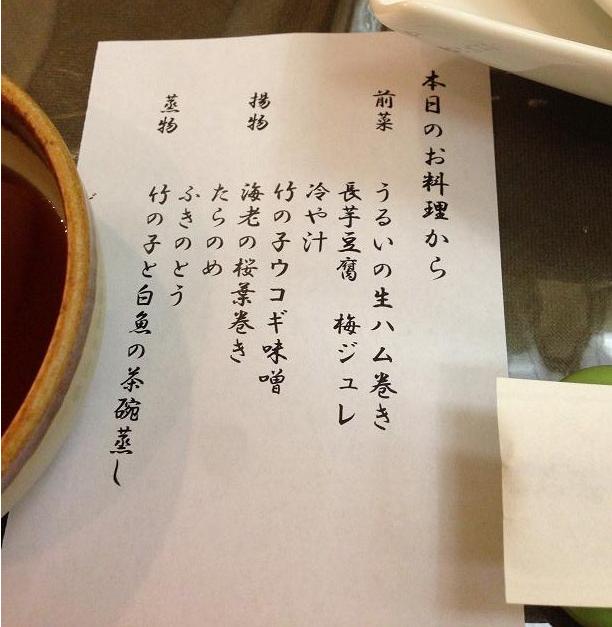 本日のお料理から
前菜 うるいの生ハム巻き
長芋豆腐 梅ジュレ
冷や汁
竹の子ウコギ味噌
揚物 海老の桜葉巻き
たらのめ
ふきのとう
蒸物 竹の子と白魚の茶碗蒸し